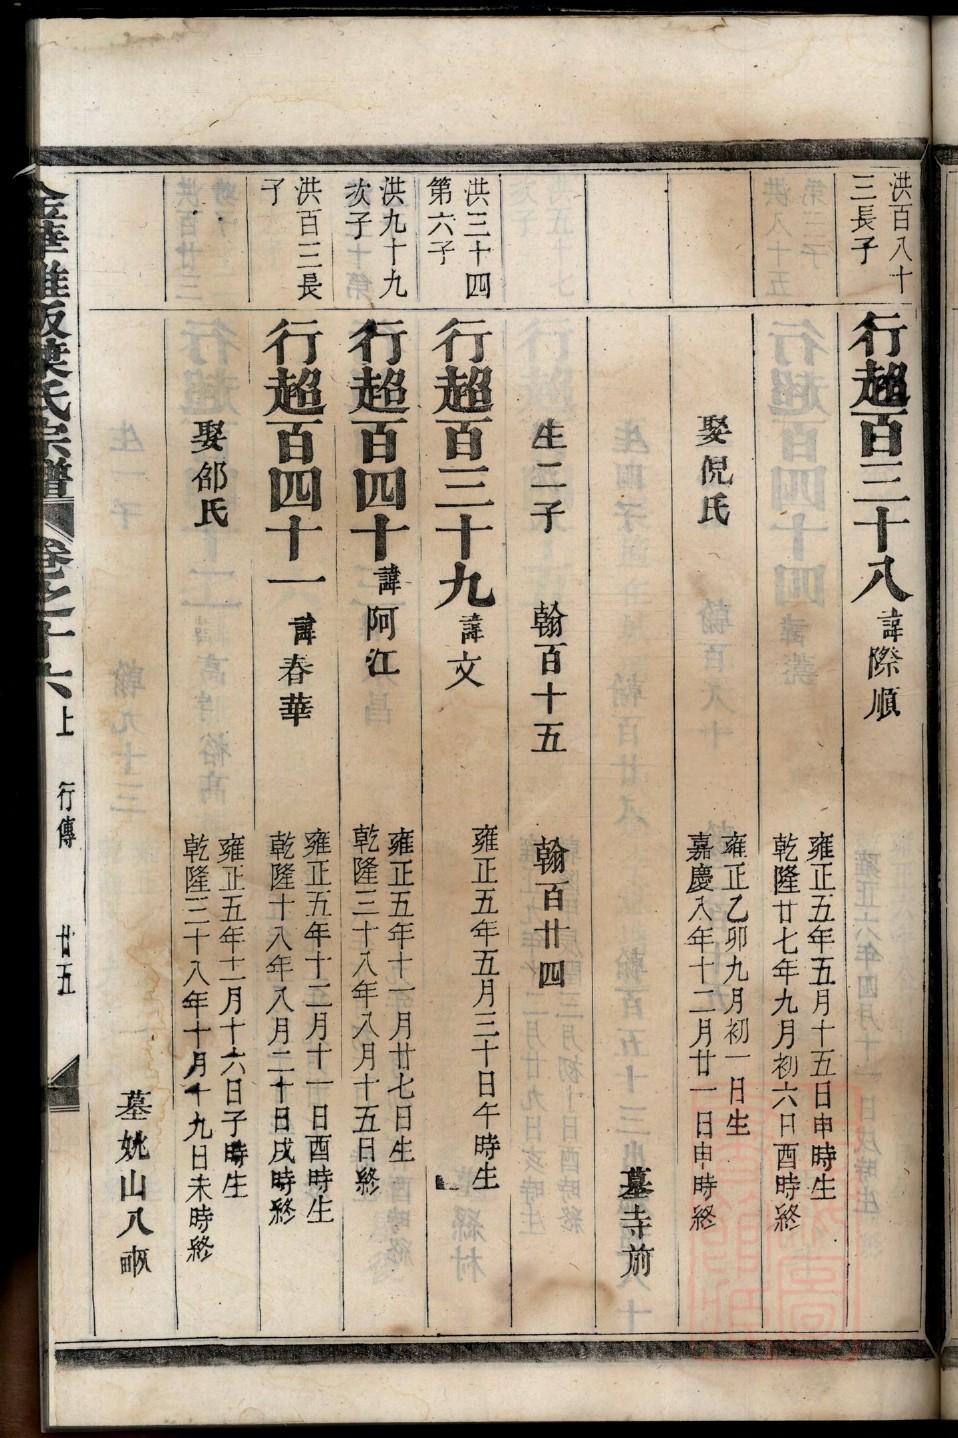 洪百八十
三長子
行超百三十八 諱際順
雍正五年五月十五日申時生
乾隆廿七年九月初六日酉時終
娶倪氏
雍正乙卯九月初一日生
嘉慶八年十二月廿一日申時終
墓寺前
生二子 翰百十五 翰百廿四
洪三十四
第六子
行超百三十九 諱文
雍正五年五月三十日午時生
洪九十九
次子
行超百四十 諱阿江
雍正五年十一月廿七日生
乾隆三十八年八月十五日終
洪百三長
子
行超百四十一 諱春華
雍正五年十二月十一日酉時生
乾隆十八年八月二十日戌時終
娶邰氏
雍正五年十一月十六日子時生
乾隆三十八年十月十九日未時終
墓姚山八畈
宗譜 卷之十六上 行傳 廿五